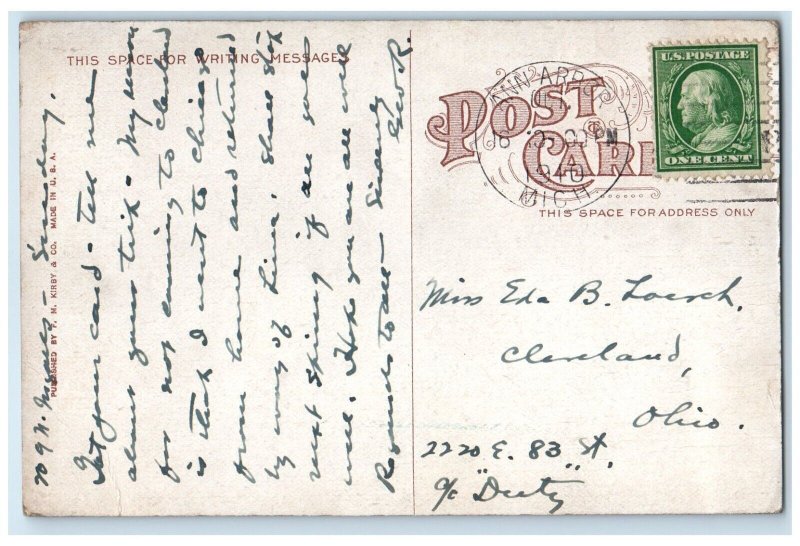 THIS SPACE FOR WRITING MESSAGES
709 N. Sunday.
Got your card - tell me
about your trip - My reason
for not coming to Cleveland
is that I went to Chicago
from home and returned
by way of Lima. Shall stop
next Spring if all goes
well. Hope you are all well
Regards to all - Sincerely
Geo R.
PUBLISHED BY F. M. KIRBY & CO. MADE IN U. S. A.
POST CARD
ANN ARBOR
MICH.
U.S. POSTAGE
ONE CENT
THIS SPACE FOR ADDRESS ONLY
Miss Eda B. Loesch.
Cleveland,
Ohio.
2220 E. 83 St.
c/o "Duty"